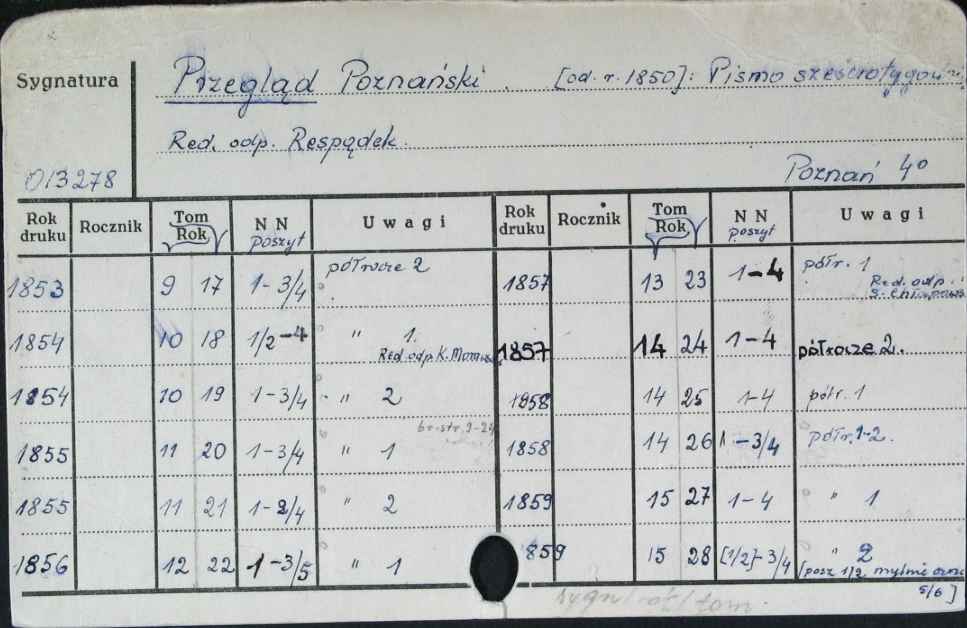 Sygnatura Przegląd Poznański. [od. r. 1850]: Pismo
Red. odp. Respądek.
013278 Poznań 4°
Rok druku Rocznik Tom Rok N N poszyt Uwagi Rok druku Rocznik Tom Rok N N poszyt Uwagi
1853 9 17 1-3/4 półrocze 2 1857 13 23 1-4 półr. 1 Red. odp.
1854 10 18 1/2-4 " 1. Red. odp. K. 1857 14 24 1-4 półrocze 2.
1854 10 19 1-3/4 " 2 1958 14 25 1-4 półr. 1
br. str.
1855 11 20 1-3/4 " 1 1858 14 26 1-3/4 półr. 1-2.
1855 11 21 1-2/4 " 2 1859 15 27 1-4 " 1
1856 12 22 1-3/5 " 1 859 15 28 [1/2]-3/4 " 2
[posz 1/2 mylnie
5/6]
sygn/ /tom.